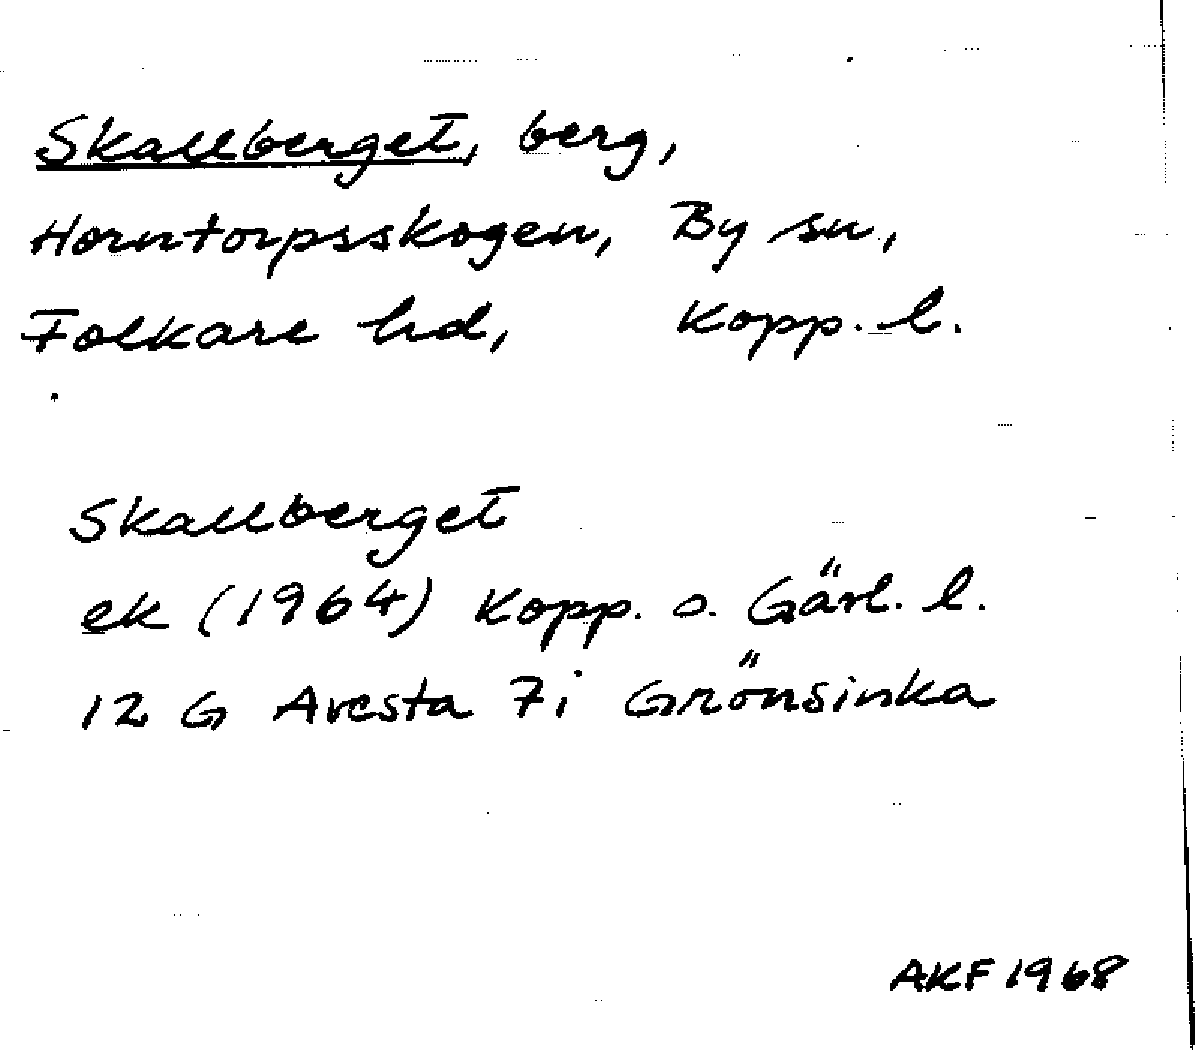 Skallberget, berg,
Horntorpsskogen, By sn,
Folkare hd, Kopp. l.
Skallberget
ek (1964) Kopp. o. Gävl. l.
12 G Avesta 7i Grönsinka
AKF 1968